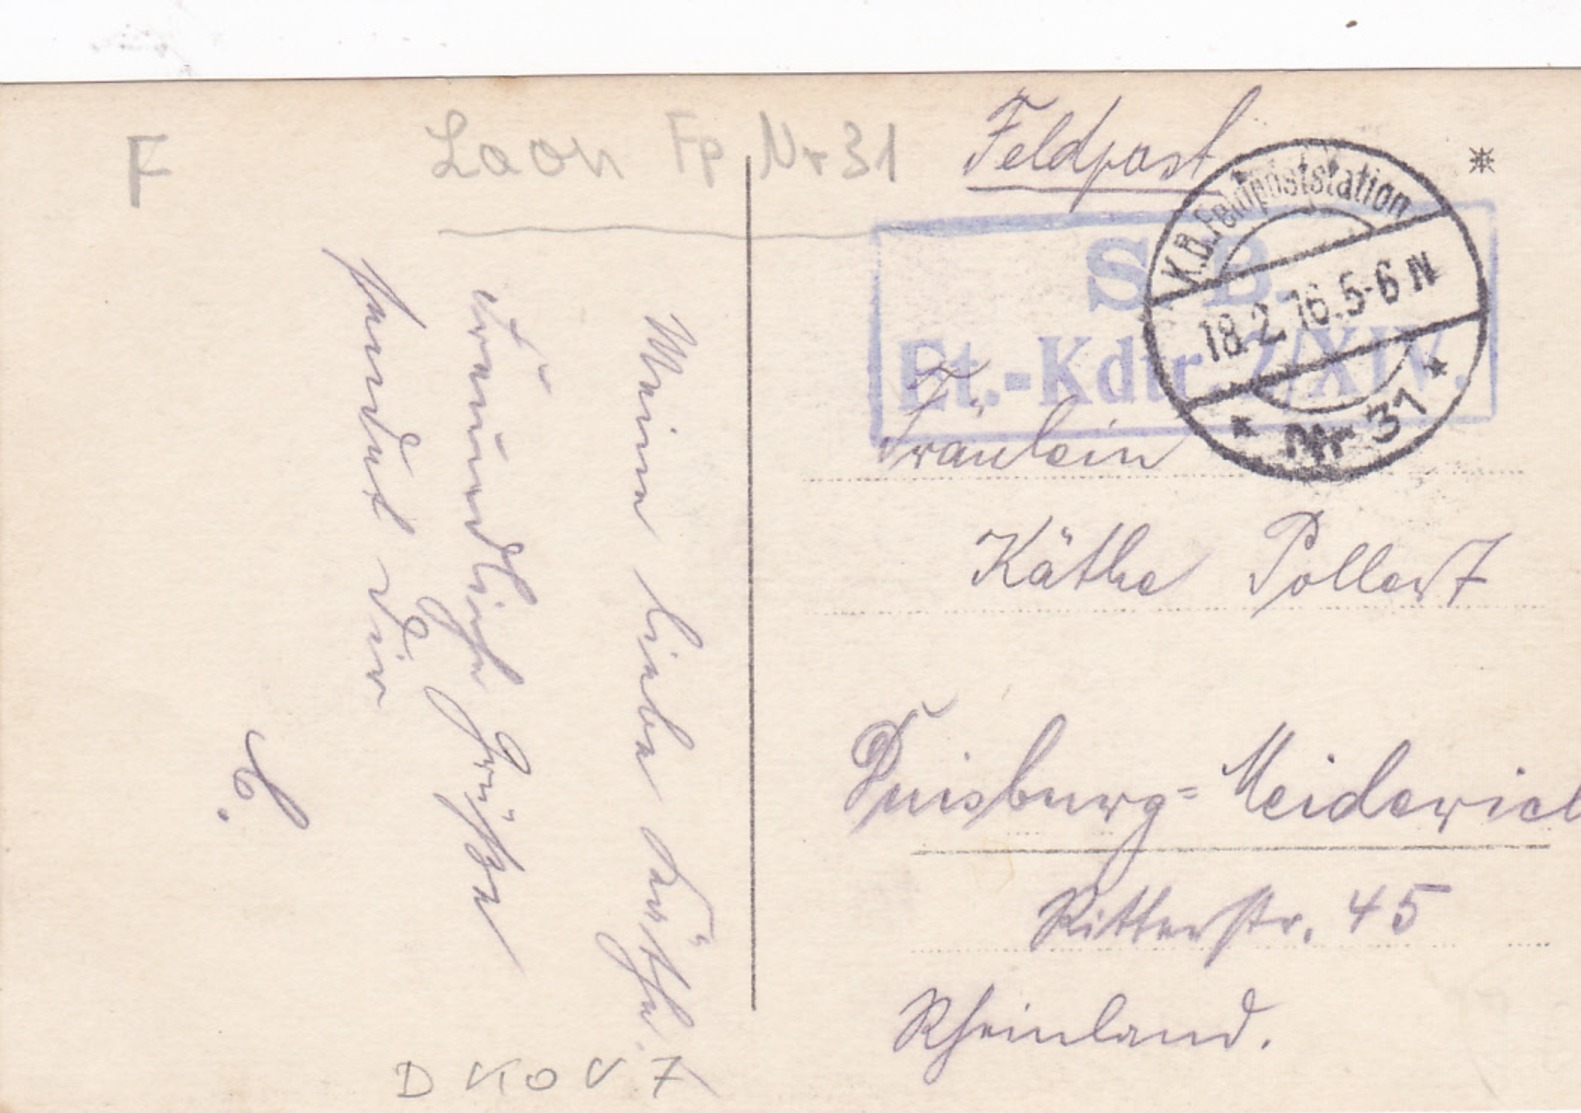 F
Laon Fp Nr 31
Feldpost
S. B.
Et.-Kdtr. 2/XIV.
K.B. Feldpoststation
18.2.16.5-6 N
* Nr 31 *
Fräulein
Käthe Pollert
Duisburg=Meiderich
Ritterstr. 45
Rheinland.
Meine liebe Käthe!
Freundliche Grüße
sendet Dir
C.